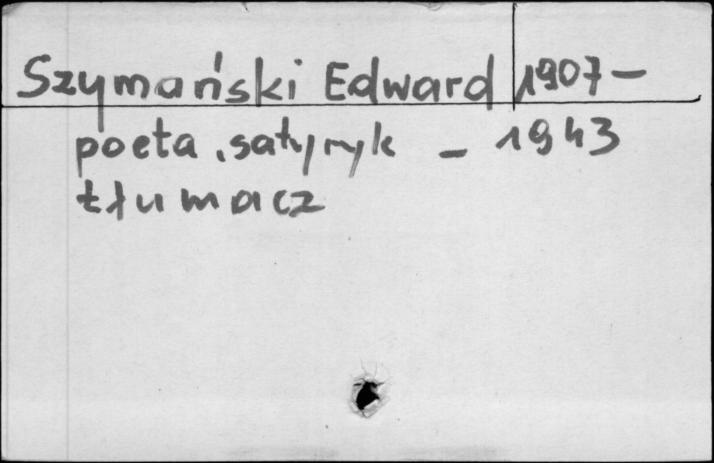 Szymański Edward 1907-
poeta, satyryk - 1943
tłumacz